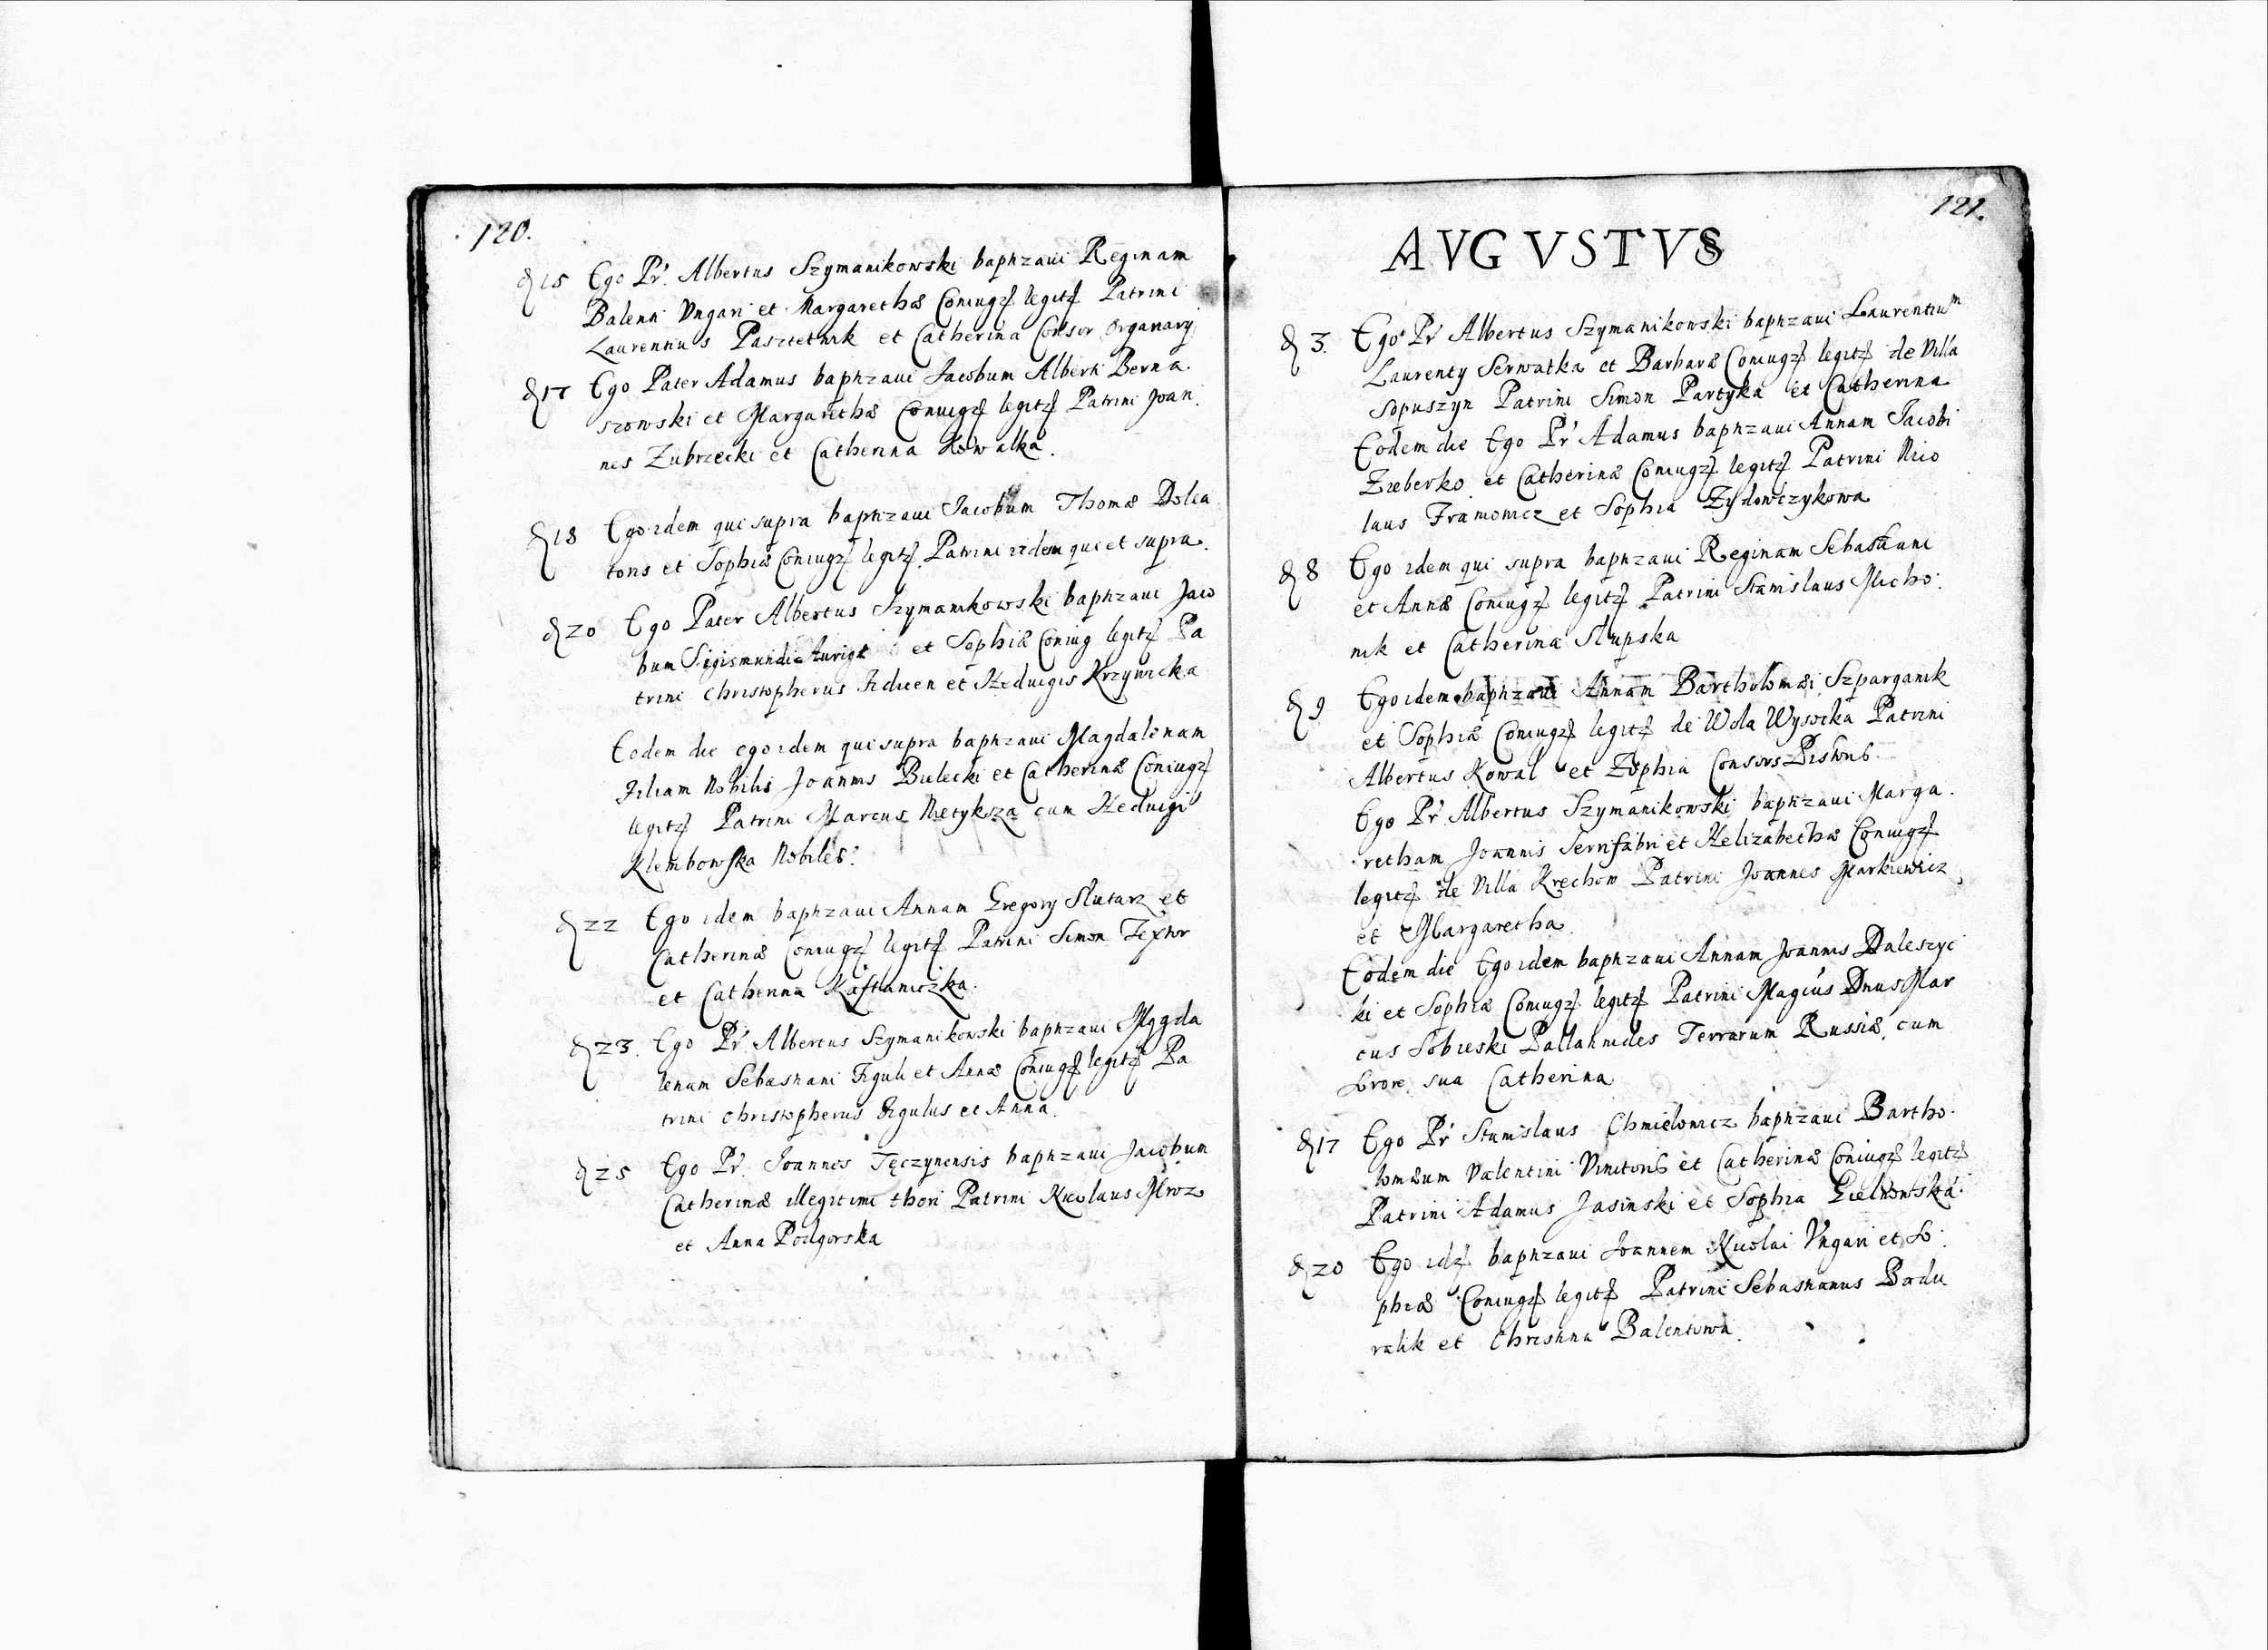 120.
15 Ego Pr. Albertus Szymanikowski baptizaui Reginam
Balenti Vngari et Margarethæ Coniugz legitz Patrini
Laurentius Pasztetnik et Catherina Consor Organarij
17 Ego Pater Adamus baptizaui Jacobum Alberti Berna.
szowski et Margarethæ Coniugz legitz Patrini Joan.
nes Zubrzecki et Catherina Kowalka.
18 Ego idem qui supra baptizaui Jacobum Thomæ Dolea
toris et Sophiæ Coniugz legitz. Patrini iidem qui et supra.
20 Ego Pater Albertus Szymanikowski baptizaui Jaco
bum Sigismundi Aurigæ et Sophiæ Coniug legitz Pa
trini Christopherus et Heduigis Krzywicka
Eodem die ego idem qui supra baptizaui Magdalenam
Filiam Nobilis Joannis Bielecki et Catherinæ Coniugz
legitz Patrini Marcus Nietyksza cum Heduigi
Klembowska Nobiles.
22 Ego idem baptizaui Annam Gregory Slutarz et
Catherinæ Coniugz legitz Patrini Simon Textor
et Catherina Kaftaniczka.
23. Ego Pr. Albertus Szymanikowski baptizaui Maggda
lenam Sebastiani Figuli et Annæ Coniugz legitz Pa
trini Christopherus Figulus et Anna.
25 Ego Pr. Joannes Tęczynensis baptizaui Jacobum
Catherinæ illegitimi thori Patrini Nicolaus Mroz
et Anna Podgorska
121.
AVGVSTVS
3. Ego Pr Albertus Szymanikowski baptizaui Laurentium
Laurenty Serwatka et Barbaræ Coniugz legitz de Villa
Sopuszyn Patrini Simon Partyka et Catherina
Eodem die Ego Pr Adamus baptizaui Annam Jacobi
Zieberko et Catherinæ Coniugz legitz Patrini Nico
laus Framowicz et Sophia Zydowczykowa
8 Ego idem qui supra baptizaui Reginam Sebastiani
et Annæ Coniugz legitz Patrini Stanislaus Micho
nik et Catherina Slupska
9 Ego idem baptizaui Annam Bartholomæi Szparganik
et Sophiæ Coniugz legitz de Wola Wysocka Patrini
Albertus Kowal et Zophia Consors Pistoris.
Ego Pr. Albertus Szymanikowski baptizaui Marga.
retham Joannis Serrifabri et Helizabethæ Coniugz
legitz de Villa Krechow Patrini Joannes Markiewicz
et Margaretha.
Eodem die Ego idem baptizaui Annam Joannis Daleszyc
ki et Sophiæ Coniugz legitz Patrini Magcus Dnus Mar
cus Sobieski Pallatinides Terrarum Russiæ, cum
Sorore sua Catherina
17 Ego Pr Stanislaus Chmielowicz baptizaui Bartho.
lomæum Valentini Vinitoris et Catherinæ Coniugz legitz
Patrini Adamus Jasinski et Sophia
20 Ego idz baptizaui Joannem Nicolai Vngari et So.
phiæ Coniugz legitz Patrini Sebastianus Badu
ralik et Christina Balentowa.